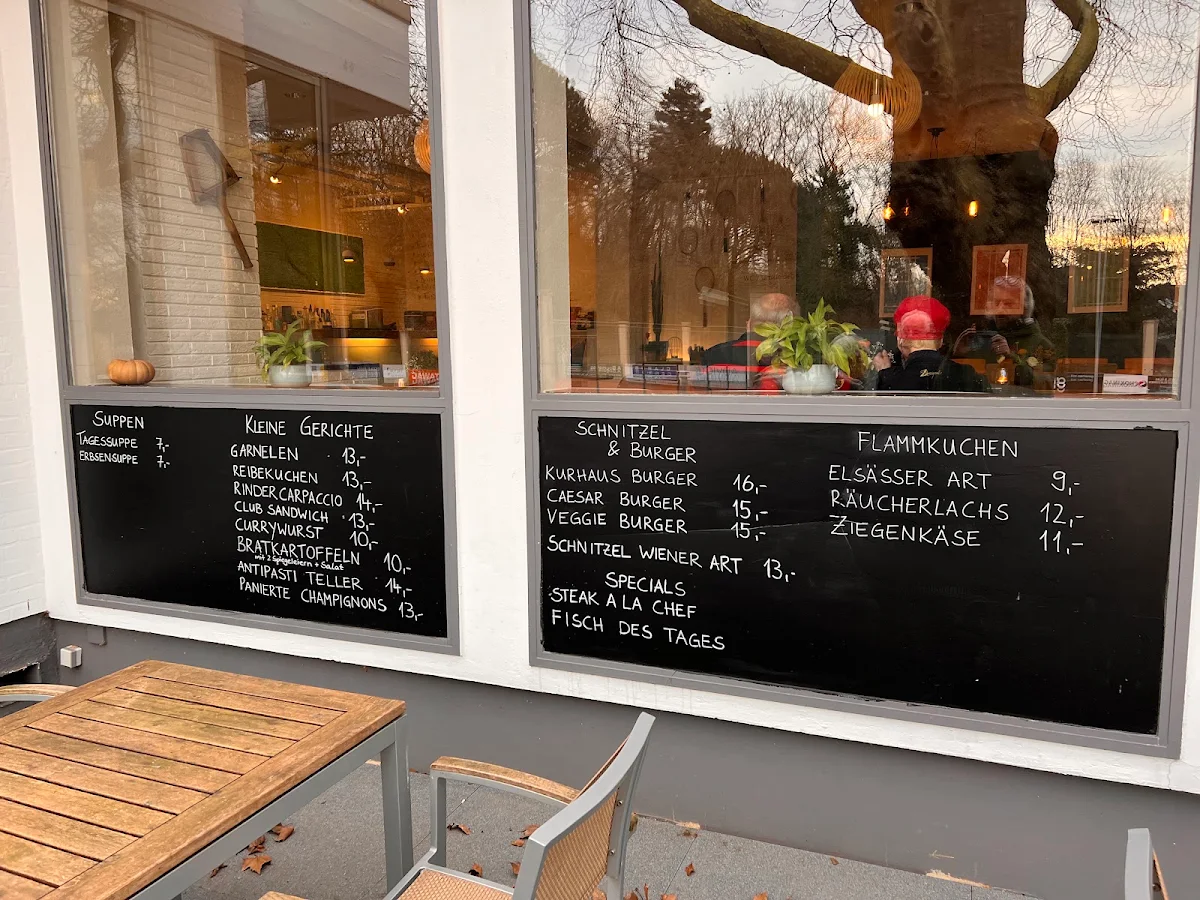 SUPPEN
TAGESSUPPE 7,-
ERBSENSUPPE 7,-
KLEINE GERICHTE
GARNELEN 13,-
REIBEKUCHEN 13,-
RINDERCARPACCIO 14,-
CLUB SANDWICH 13,-
CURRYWURST 10,-
BRATKARTOFFELN 10,-
mit 2 Spiegeleiern + Salat
ANTIPASTI TELLER 14,-
PANIERTE CHAMPIGNONS 13,-
SCHNITZEL
& BURGER
KURHAUS BURGER 16,-
CAESAR BURGER 15,-
VEGGIE BURGER 15,-
SCHNITZEL WIENER ART 13,-
SPECIALS
STEAK A LA CHEF
FISCH DES TAGES
FLAMMKUCHEN
ELSÄSSER ART 9,-
RÄUCHERLACHS 12,-
ZIEGENKÄSE 11,-